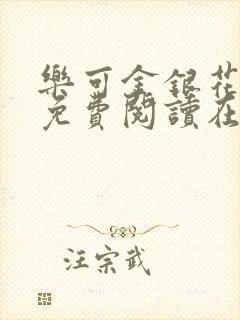 樂可金銀花
免費閱讀在
汪宗武